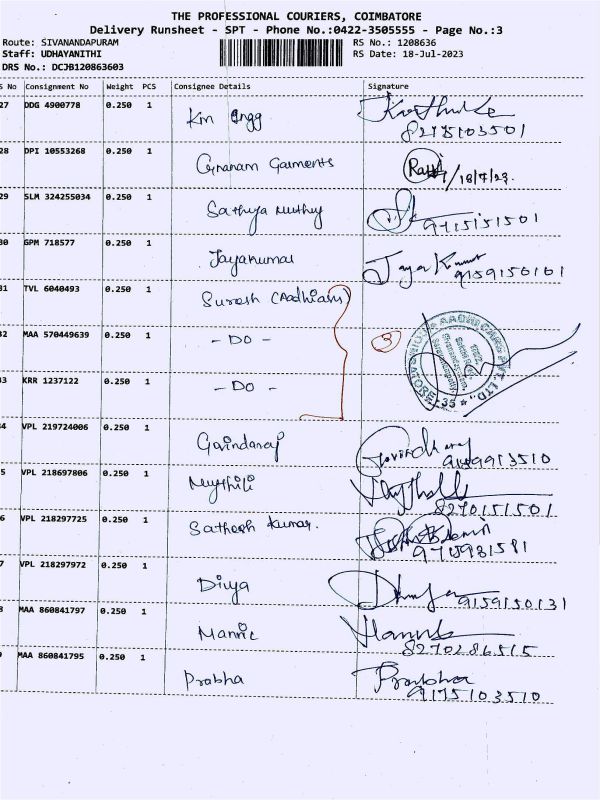 THE PROFESSIONAL COURIERS, COIMBATORE
Delivery Runsheet - SPT - Phone No.:0422-3505555 - Page No.:3
Route: SIVANANDAPURAM RS No.: 1208636
Staff: UDHAYANITHI RS Date: 18-Jul-2023
DRS No.: DCJB120863603
S No Consignment No Weight PCS Consignee Details Signature
27 DDG 4900778 0.250 1 Kin engg
8278103501
28 DPI 10553268 0.250 1 Gnanam Garments
18/7/23
29 SLM 324255034 0.250 1 Sathiya Muthy
9715151501
30 GPM 718577 0.250 1 Jayakumar Jaya Kumar
9159150101
31 TVL 6040493 0.250 1 Suresh (Aadhians)
32 MAA 570449639 0.250 1 - DO - 3
33 KRR 1237122 0.250 1 - DO -
34 VPL 219724006 0.250 1 Govindaraj
5 VPL 218697806 0.250 1 Mythili
8270151501
6 VPL 218297725 0.250 1 Sathesh Kumar.
7 VPL 218297972 0.250 1 Divya
9159150131
8 MAA 860841797 0.250 1 Mannie
8270286515
9 MAA 860841795 0.250 1 Prabha Prabha
9175103510